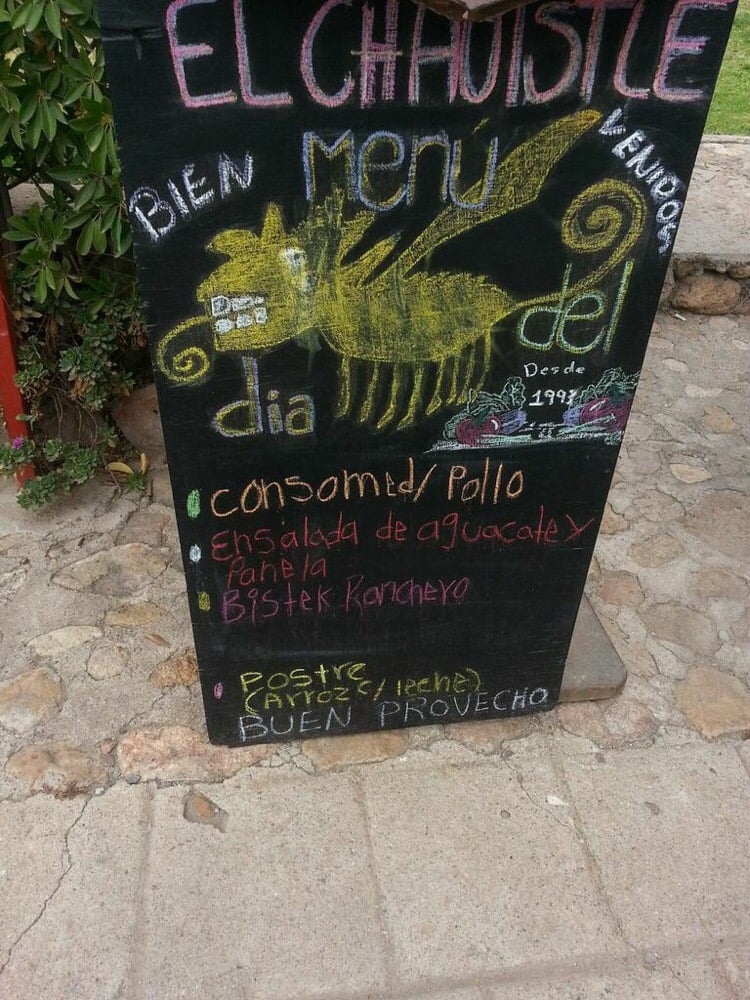 EL CHAUISTLE
BIEN VENIDOS
Menú
del
dia
Desde
1997
consome d/ Pollo
Ensalada de aguacate y
Panela
Bistek Ranchero
POSTRE
(Arroz c/ leche)
BUEN PROVECHO